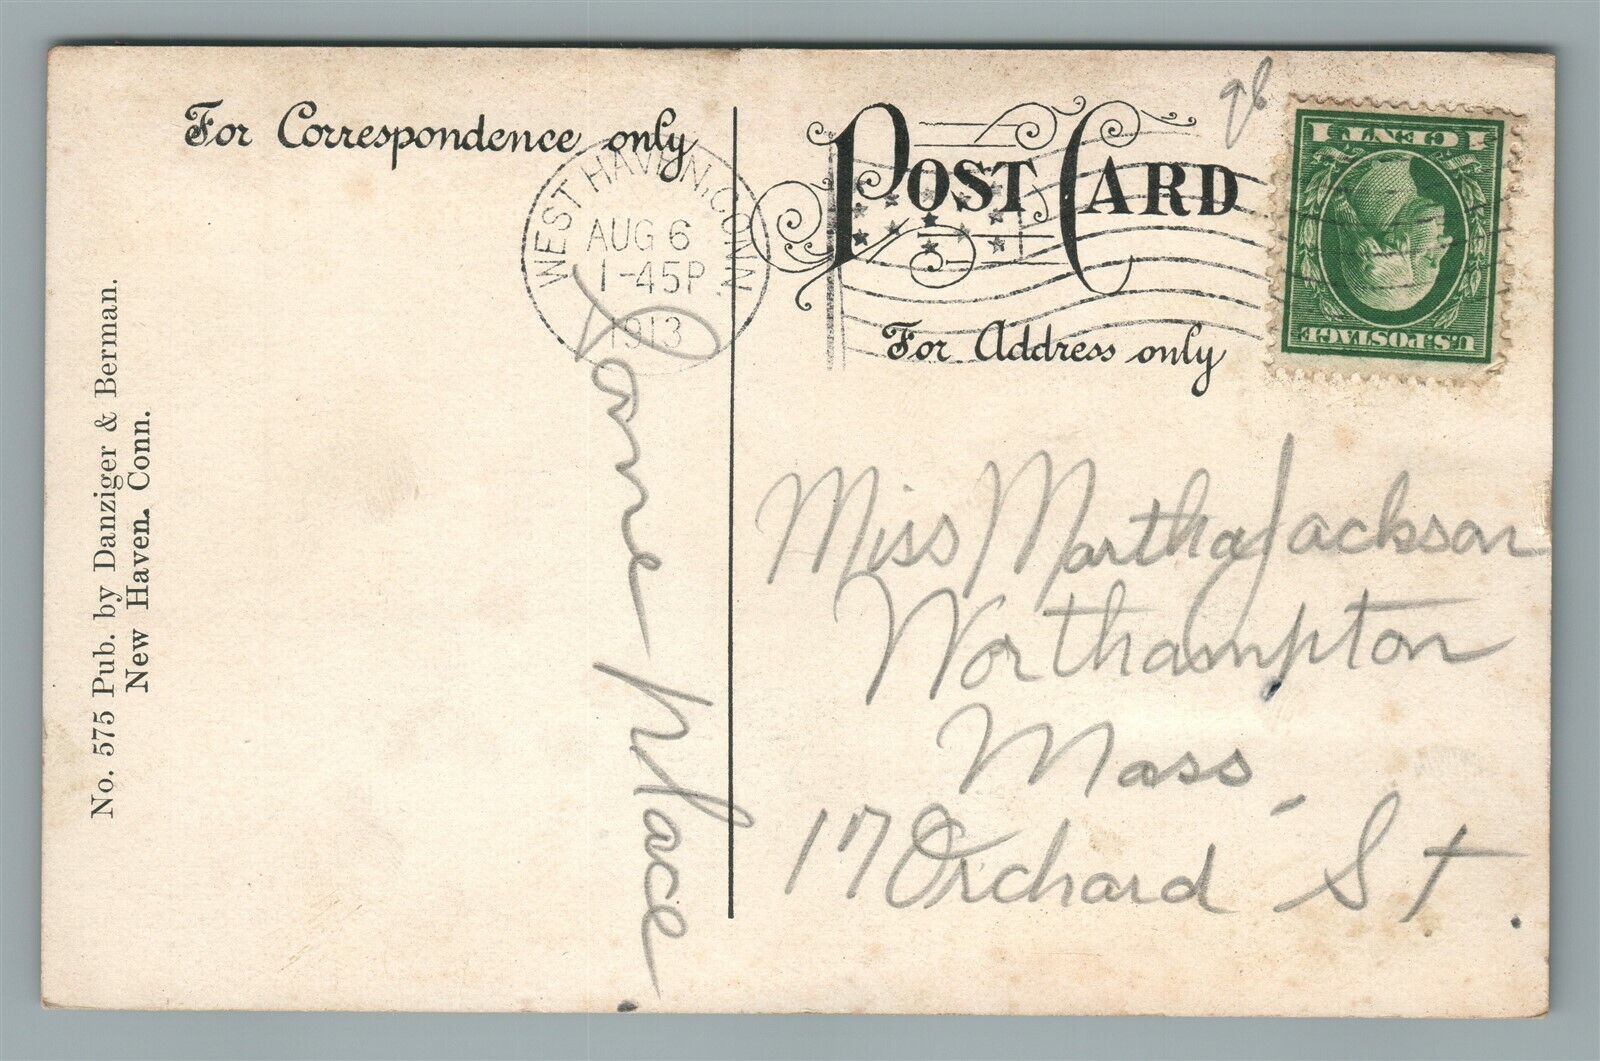 For Correspondence only
POST CARD
For Address only
WEST HAVEN, CONN.
AUG 6
1-45P
1913
1 CENT 1
U.S. POSTAGE
No. 575 Pub. by Danziger & Berman.
New Haven. Conn.
Some place.
Miss Martha Jackson
Northampton
Mass,
17 Orchard St.